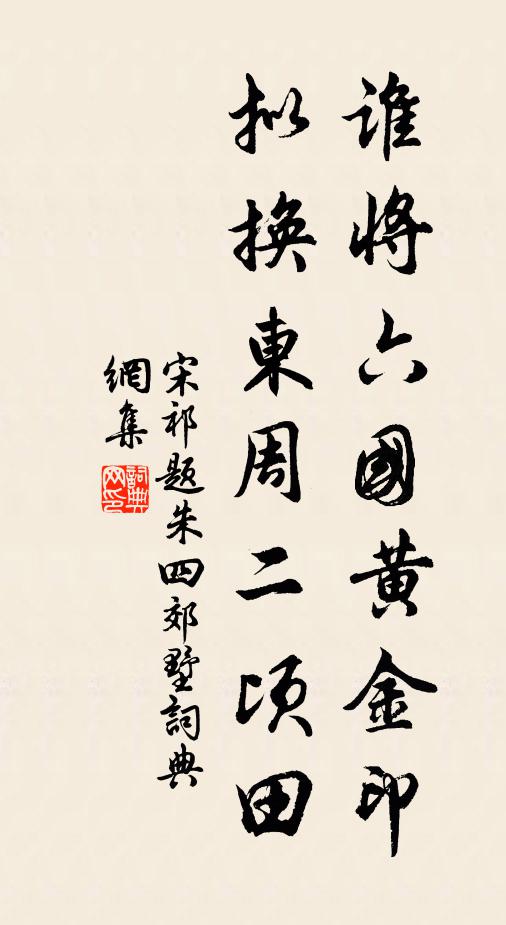 誰將六國黃金印
拟換東周二頃田
宋祁題朱四郊墅詞典
網集
詞典網印